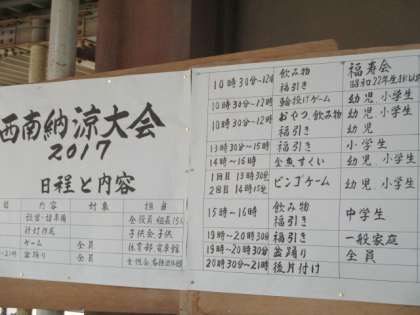 西南納涼大会
2017
日程と内容
内容 対象 担当
設営・諸準備 全役員
子供会 子供
ゲーム 全員 体育部
盆踊り 全員 女性会
10時30分~12時 飲み物 福引き 福寿会
10時30分~12時 輪投げゲーム 幼児 小学生
10時30分~12時 おやつ、飲み物 幼児 小学生
福引き 幼児
13時30分~15時 福引き 小学生
14時~16時 金魚すくい 幼児 小学生
1日目 13時30分
2日目 14時15分 ビンゴゲーム 幼児 小学生
15時~16時 飲み物 福引き 中学生
19時~20時30分 福引き 一般家庭
19時~20時30分 盆踊り 全員
20時30分~21時 後片付け